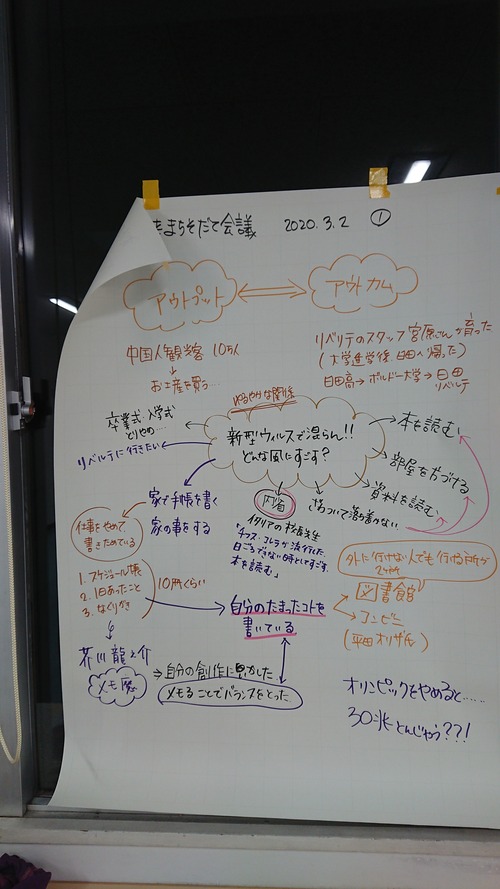 まちそだて会議 2020.3.2 ①
アウトプット ⇔ アウトカム
中国人観光客 10万人
→お土産を買う…
リベルテのスタッフ 宮原さんが育った
(大学進学後 日田へ帰った)
日田高→ボルドー大学→日田
リベルテ
ゆるやかな関係
新型ウィルスで混らん!!
どんな風にすごす?
卒業式・入学式
とりやめ…
リベルテに行きたい
家で手帳を書く
家の事をする
仕事をやめて
書きためている
1. スケジュール帳
2. 1日あったこと
3. なぐりがき
10冊くらい
芥川龍之介
メモ魔
⇒自分の創作に
メモることでバランスをとった
自分のたまったコトを
書いている
内省
イタリアの校長先生
「チフス・コレラが流行した、
日ごろできない時としてすごす。
本を読む」
落ちついて落ち着かない
本を読む
部屋を片づける
資料を読む
外に行けない人でも行ける場所が
図書館
コンビニ
(平田オリザ氏)
オリンピックをやめると……
30兆とんじゃう??!